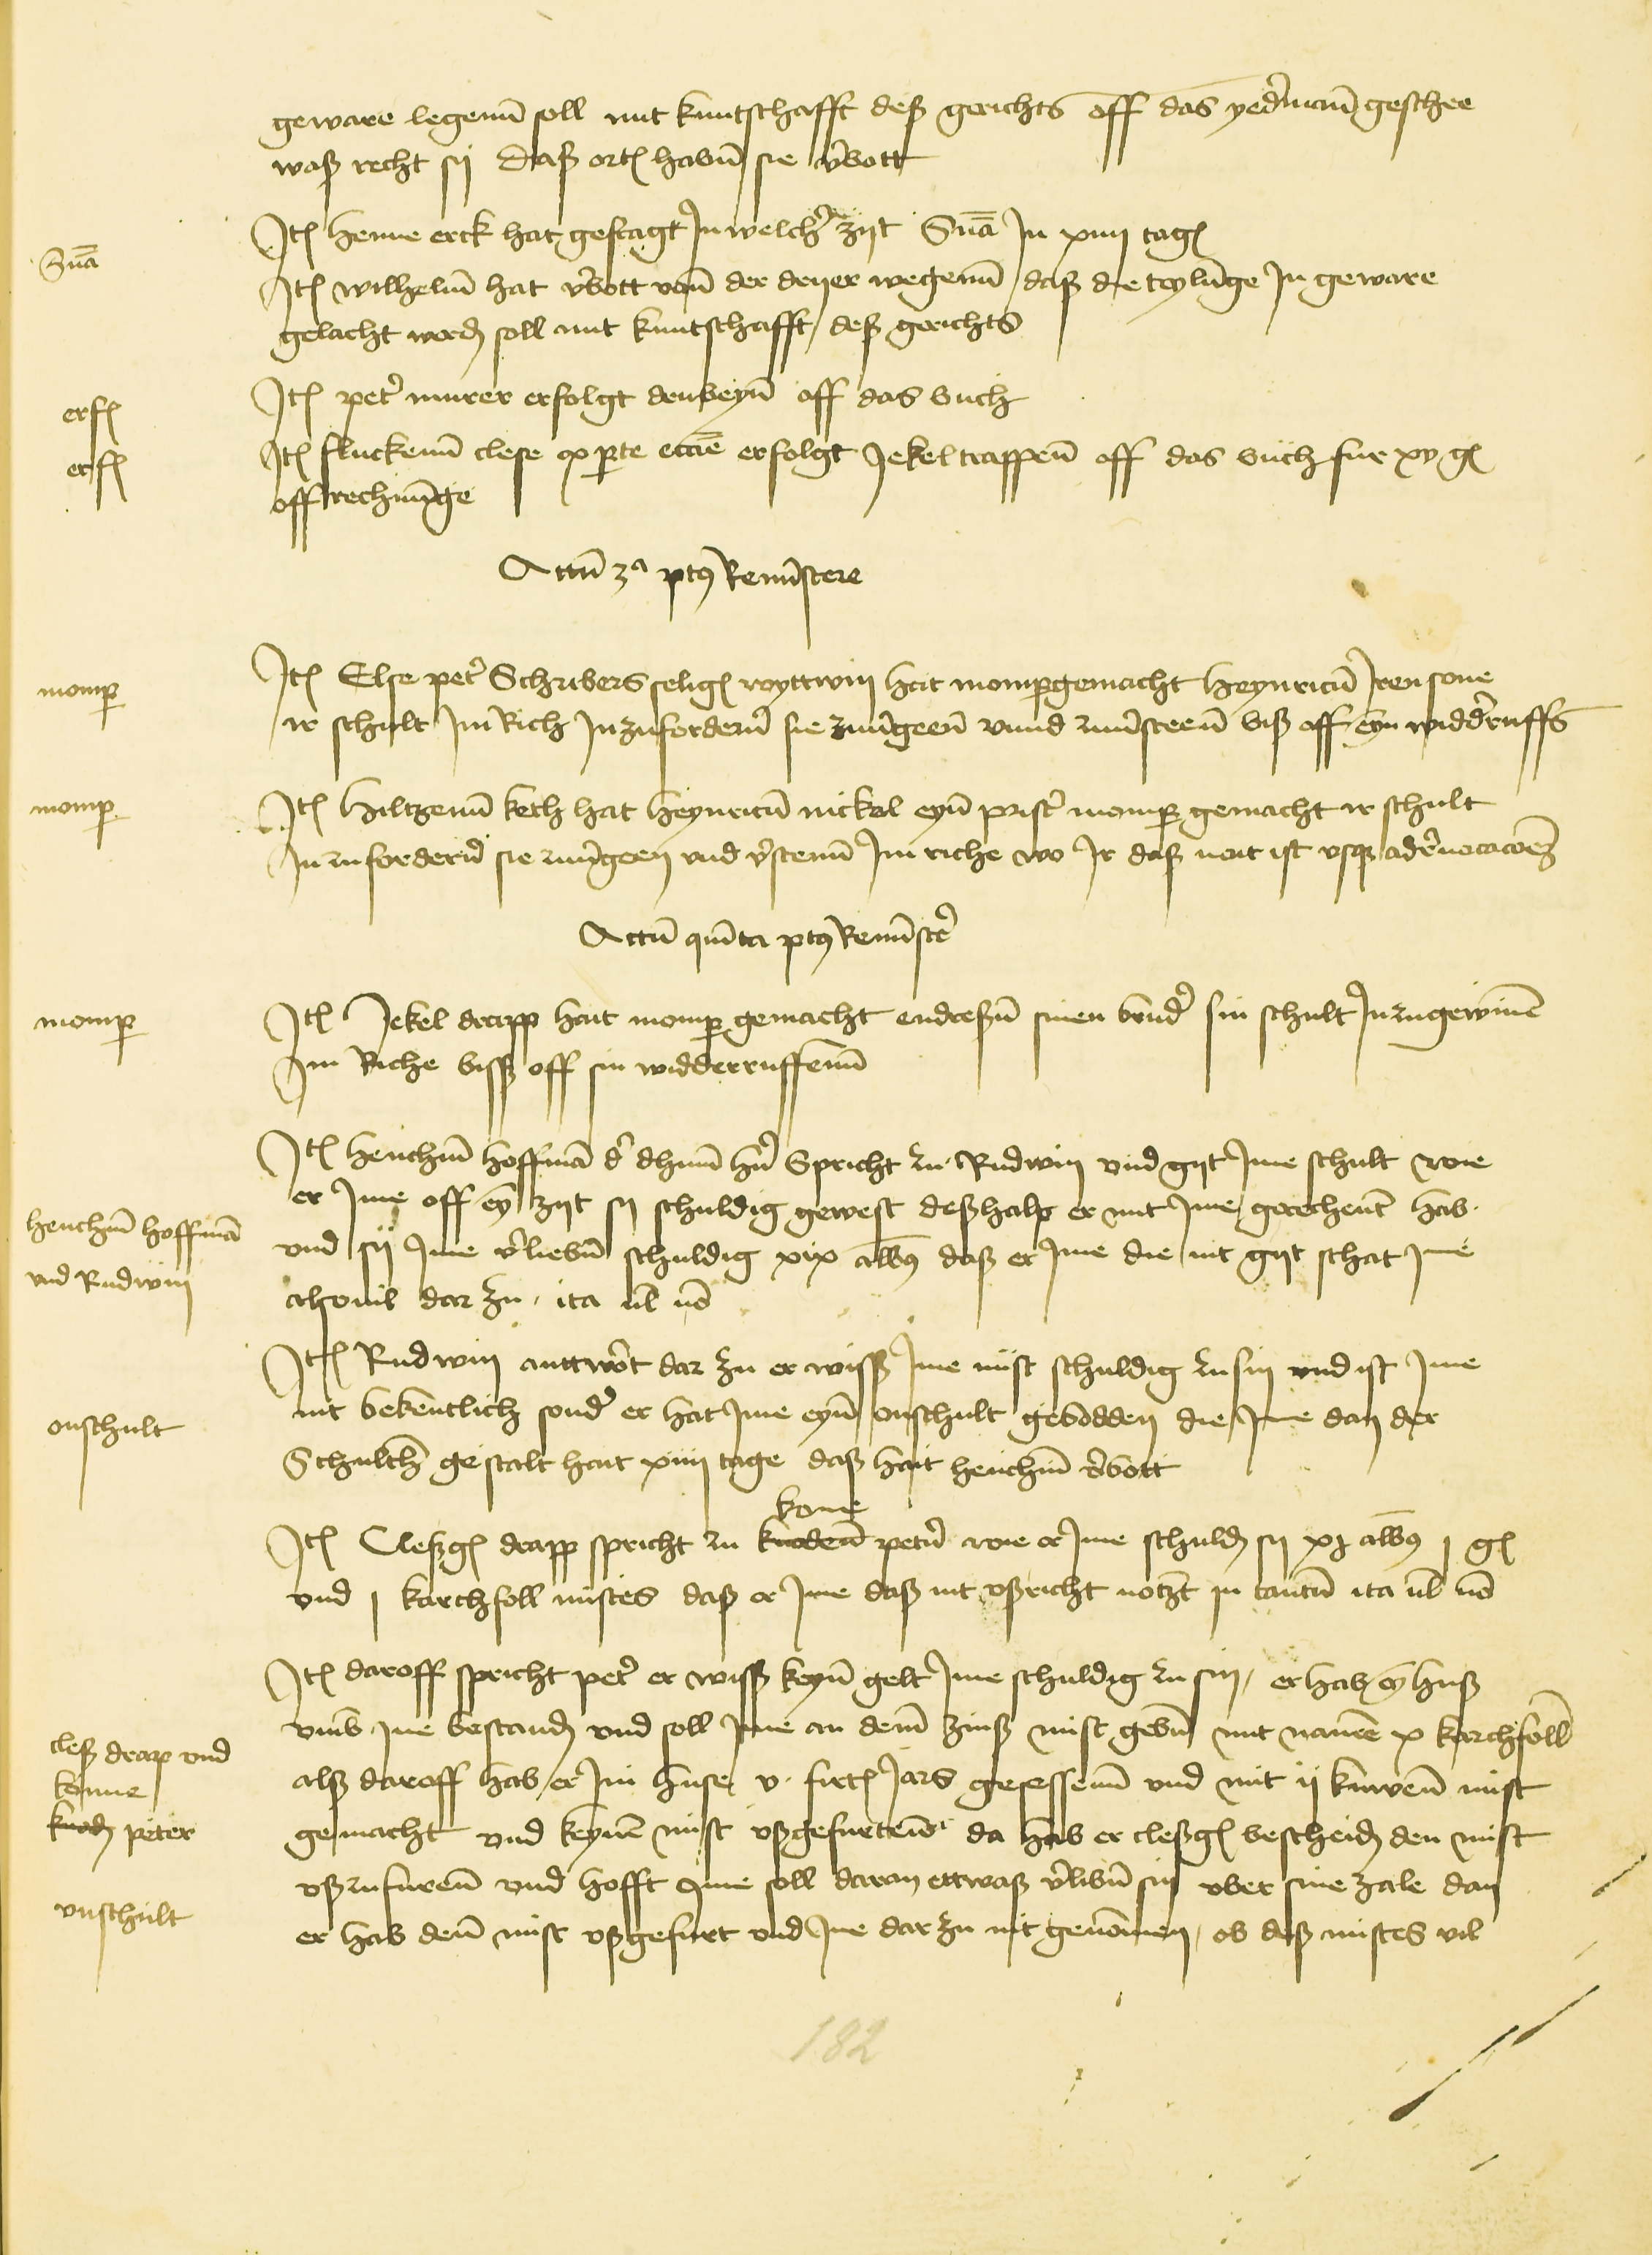 geware legenn soll mit kuntschafft deß gerichts off das yederman geschee
waß recht sij Daß ortel habin sie verbott
Snia
Item Henne erck hat gefragt In welcher zijt Snia In xiiij tagen
Item wilhelm hat verbott von der drijer wegenn daß die teylunge In geware
gelacht werden soll mit kuntschafft deß gerichts
erf
Item peter murer erfolgt drubeyn off das buch
erf
Item fluckenn clese ex parte eccie erfolgt Jekel trappenn off das buch fur xv gl
off rechnunge
Actum 3a post Reminiscere
momp
Item Else peter Schribers seligen wyttwin hait momper gemacht Heynricum Iren sone
ir schult Im Rich In zufordern sie zuugeen unnd zuusteen biß off eyn widderruffs
momp
Item Hiltzenn keth hat Heynricum nickel eyn prister momper gemacht ir schult
In zu fordern sie zuugeen und verstenn Im riche wo Ir daß noit ist usque ad revocacionem
Actum quinta post Reminiscere
momp
Item Jekel drapp hait momper gemacht endreßen sinen bruder sin schult In zugewinen
Im Riche biß off sin widderruffenn
henchin hoffman
und Rudwin
Item Henchin Hoffman der dhum hern Spricht zu Rudwin und gijt Ime schult wie
er Ime off ey zijt sij schuldig gewest deßhalp er mit Ime gerechent hab
und sij Ime verliebin schuldig xix albus daß er Ime die nit gijt schat Ime
alsovil dar zu ita vel non
onschult
Item Rudwin anttwort dar zu er wiß Ime nust schuldig zu sin und ist Ime
nit bekentlich sonder er hat Ime eyn onschult gebodden die Ime dan der
Schulth gestalt hait xiiij tage daß hait henchin verbott
Item Cleßgen drapp spricht zu knodenn konne petern wie er Ime schuldig sij xj albus j gl
und j karchfoll mistes daß er Ime daß nit ußricht notzt In tantum ita vel non
cleß drapp und
konne
knoden peter
unschult
Item daroff spricht peter er wiß keyn gelt Ime schuldig zu sin er hab ey huß
umb Ine bestanden und soll Ime an dem zinß mist gebin mit namen x karchfoll
alß daroff hab er Im huse v firtel Jars gesessenn und mit ij kuwenn mist
gemacht und keynen mist ußgefurtenn da hab er cleßgen bescheiden den mist
uß zufurenn und hofft Ime soll daran ettwaß verlibin sin uber sine zale dan
er hab denn mist ußgefurt und Ine dar zu nit genommen ob deß mistes vil
182